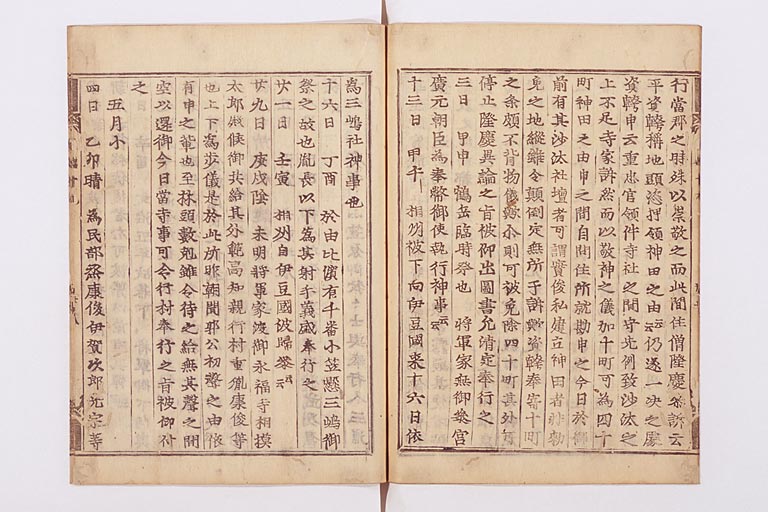 行當郡之時殊以崇敬之而此間住僧隆慶參訴云
平資幹稱地頭恣押領神田之由云々仍遂一决之處
資幹申云重忠官領件寺社之間守先例致沙汰之
上不足寺家訴然而以敬神之儀加十町可為四十
町神田之由申之間自問注所就勘申之今日於御
前有其沙汰社壇者可謂實俊私建立神田者非勅
免之地縱雖令顛倒定無所于訴歟資幹奉寄十町
之条頗不背物儀歟然則可被免除四十町其外可
停止隆慶異論之旨被仰出圖書允清定奉行之
三日 甲申 鶴岳臨時祭也 將軍家無御參宮
廣元朝臣為奉幣御使執行神事云々
十三日 甲午 相州被下向伊豆國來十六日依
為三嶋社神事也
十六日 丁酉 於由比濱有千番小笠懸三嶋御
祭之故也胤長以下為其射手義盛奉行之
廿一日 壬寅 相州自伊豆國被歸參云々
廿九日 庚戌陰 未明將軍家渡御永福寺相摸
太郎殿候御共給其外範高知親行村重胤康俊等
也上下為歩儀是於此所昨朝聞郭公初聲之由依
有申之輩也至林頭數剋雖令待之給無其聲之間
空以還御今日當寺事可令行村奉行之旨被仰付
之
五月小
四日 乙卯晴 為民部丞康俊伊賀次郎光宗等